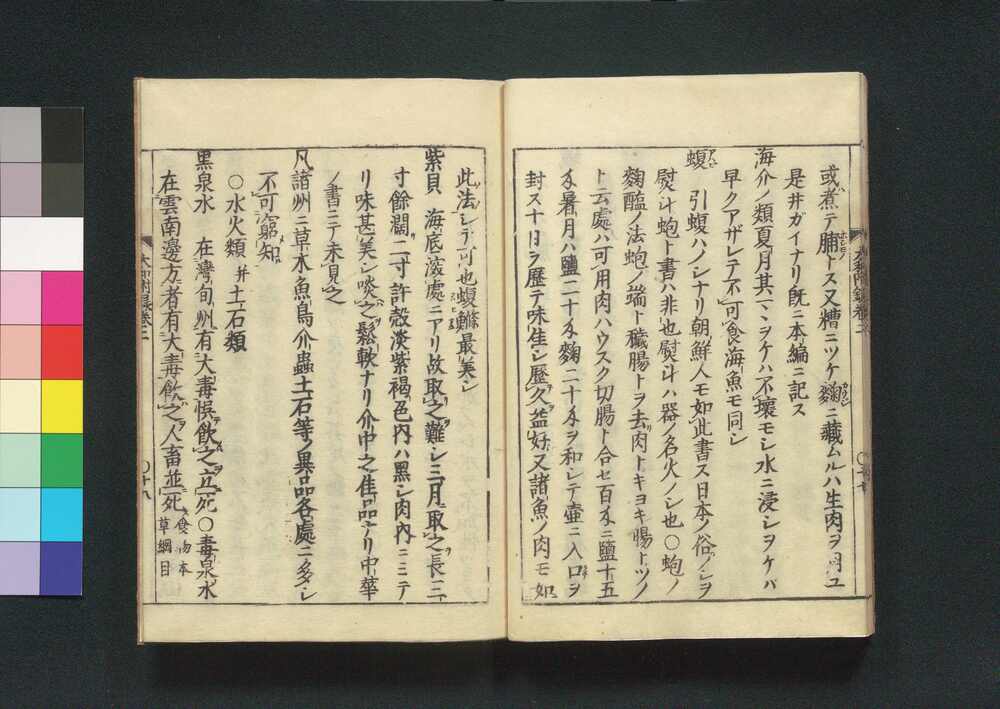 或煮テ脯トス又糟ニツケ麴ニ藏ムルハ生肉ヲ用ユ
是井ガイナリ旣ニ本編ニ記ス
海介ノ類夏月其マヽヲケハ不壞モシ水ニ浸シヲケバ
早クアザレテ不可食海魚モ同シ
蝮 引蝮ハノシナリ朝鮮人モ如此書ス日本ノ俗ノシヲ
熨斗蚫ト書ハ非也熨斗ハ器ノ名火ノシ也〇蚫ノ
麴醢ノ法蚫ノ端ト穢腸トヲ去肉トキヨキ腸トツノ
ト云處ハ可用肉ハウスク切腸ト合セ百匁ニ鹽十五
匁暑月ハ鹽二十匁麴二十匁ヲ和シテ壷ニ入口ヲ
封ス十日ヲ歷テ味生シ歷久益好又諸魚ノ肉モ如
此法シテ可也螠鰷最美シ
紫貝 海底深處ニアリ故取之難シ三月取之長三
寸餘濶二寸許殻淡紫褐色内ハ黑シ肉内ニミテ
リ味甚美シ啖之鬆軟ナリ介中之佳品ナリ中華
ノ書ニテ未見之
凡諸州ニ草木魚鳥介蟲土石等ノ異品各處ニ多シ
不可窮知
〇水火類 并土石類
黑泉水 在灣甸州有大毒悞飲之立死〇毒泉水
在雲南邊方者有大毒飲之人畜並死 食物本草綱目